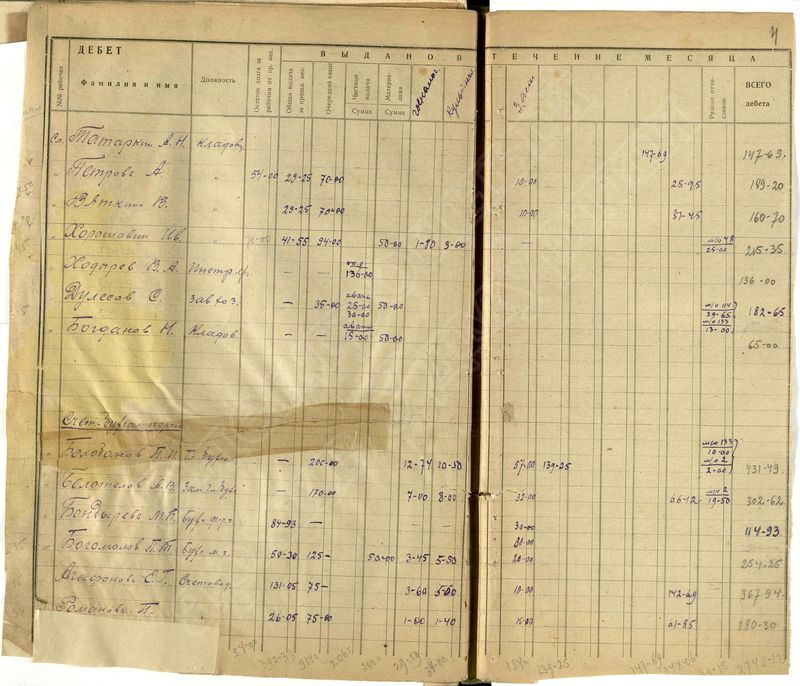 4
ДЕБЕТ
ВЫДАНО В ТЕЧЕНИЕ МЕСЯЦА
№№ рабочих
Фамилия и имя
Должность
Остаток долга за рабочим от пр. мес.
Общая выдача за прошл. мес.
Очередной аванс
Частные выдачи
Сумма
Материалами
Сумма
Заем
Разные отчисление
ВСЕГО дебета
Сл. Татаркин А. Н. Кладов. 147-69 147-69
„ Петрова А. „ 54-00 29-25 70-00 10-00 25-95 189-20
„ Вяткин В. „ 29-25 70-00 10-00 51-45 160-70
„ Хорошавин Ив. „ 41-55 94-00 50-00 1-80 3-00 — 25-00 245-35
„ Ходырев В. А. — — 136-00 136-00
„ Дулесов С. Завхоз. — 35-00 аванс 25-00 30-00 50-00 м/о 114 29-65 м/о 133 13-00 182-65
„ Богданов Н. Кладов. — — аванс 15-00 50-00 65-00
Счет.-бухгал. персон.
„ Болобанов П. И. Гл. бухгал. — 200-00 12-74 10-50 57-00 139-25 м/о 133 10-00 м/о 2 2-00 431-49
„ Белоглазов А. В. Зам. гл. бух. — 170-00 7-00 8-00 32-00 66-12 м/о 2 19-50 302-62
„ Бондырева М. П. Бух. 84-93 — 30-00 114-93
„ Богомолов П. Т. Бух. м.ч. 50-30 125- 50-00 3-45 5-50 20-00 20-00 254-25
„ Агафонова Е. Г. Счетовод. 131-05 75- 3-60 5-60 10-00 142-69 367-94
„ Романова П. „ 26-05 75-00 1-00 1-40 15-00 61-85 180-30
54-00 392-35 914= 206= 200= 139-25 147-69 348-06